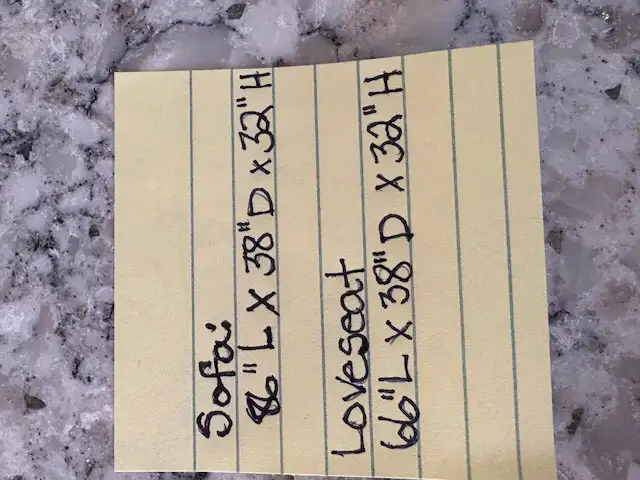 Sofa:
86"L X 38"D x 32"H
Loveseat
66"L X 38"D X 32"H